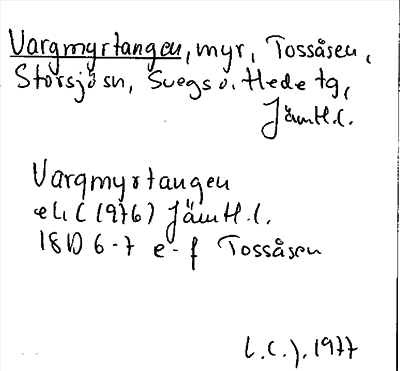 Vargmyrtangen, myr, Tossåsen,
Storsjö sn, Svegs o. Hede tg,
Jämtl.l.
Vargmyrtangen
ek. (1976) Jämtl.l.
18D 6-7 e-f Tossåsen
L.C.J. 1977